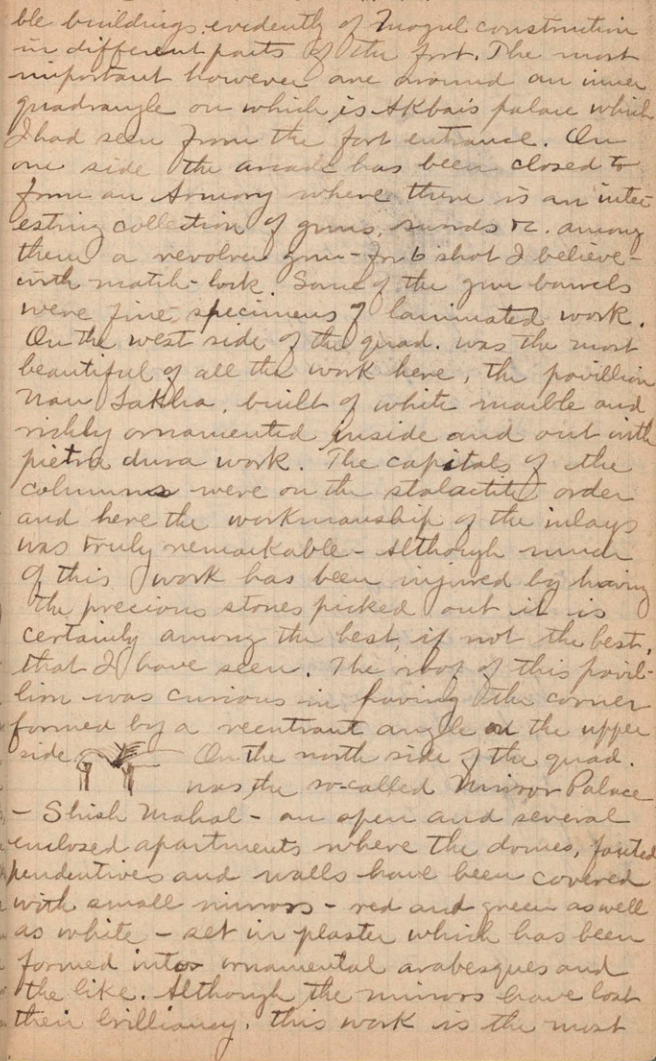 ble buildings evidently of Mogul construction
in different parts of the fort. The most
important however are around an inner
quadrangle on which is Akbar's palace which
I had seen from the fort entrance. On
one side the arcade has been closed to
form an Armory where there is an inter-
esting collection of guns, swords &c. among
them a revolver gun - for 6 shot I believe -
with match-lock. Some of the gun barrels
were fine specimens of laminated work.
On the west side of the quad. was the most
beautiful of all the work here, the pavillion
Nau Lakha, built of white marble and
richly ornamented inside and out with
pietra dura work. The capitals of the
columns were on the stalactite order
and here the workmanship of the inlays
was truly remarkable - Although much
of this work has been injured by having
the precious stones picked out it is
certainly among the best, if not the best,
that I have seen. The roof of this pavil-
lion was curious in having the corner
formed by a reentrant angle on the upper
side. On the north side of the quad.
was the so-called Mirror Palace
- Shish Mahal - an open and several
enclosed apartments where the domes,
pendentives and walls have been covered
with small mirrors - red and green as well
as white - set in plaster which has been
formed into ornamental arabesques and
the like. Although the mirrors have lost
their brilliancy, this work is the most